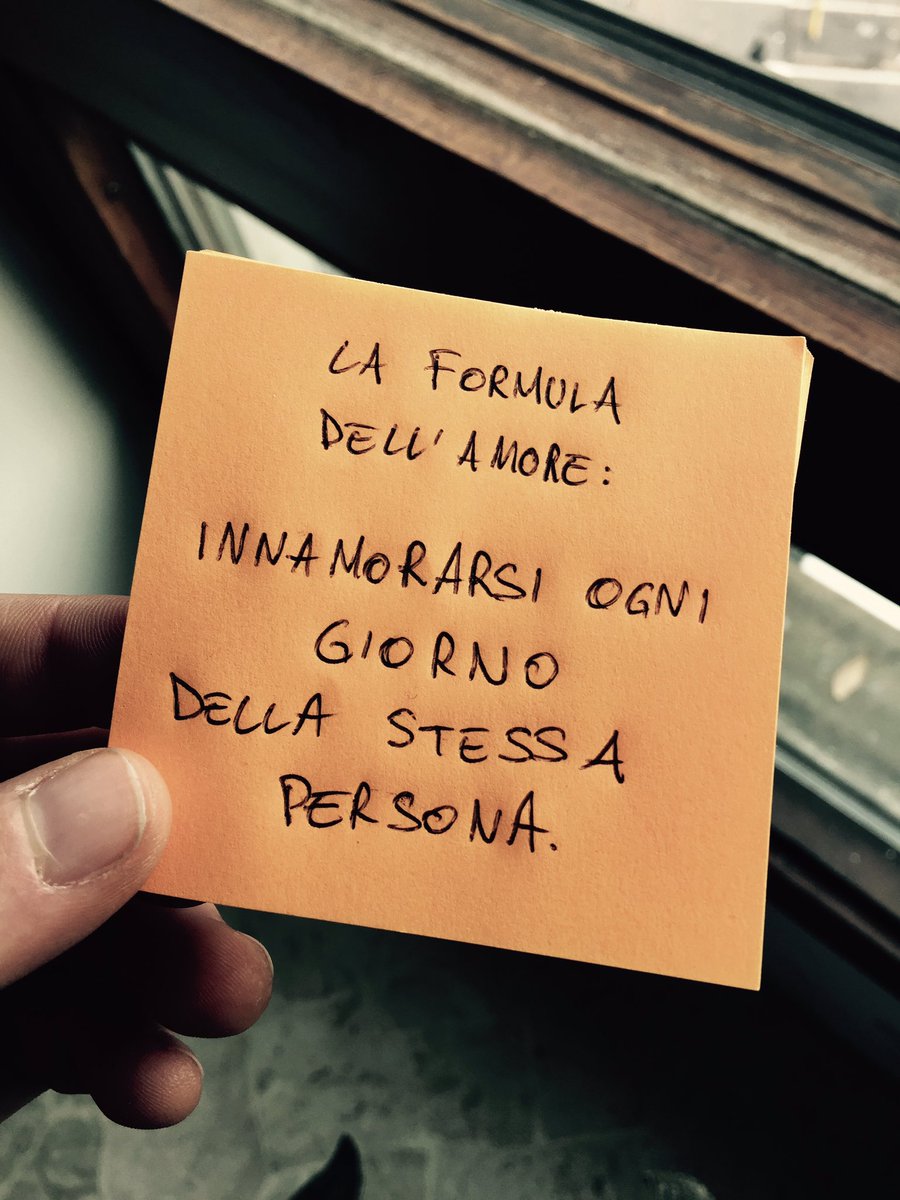 LA FORMULA
DELL'AMORE:
INNAMORARSI OGNI
GIORNO
DELLA STESSA
PERSONA.